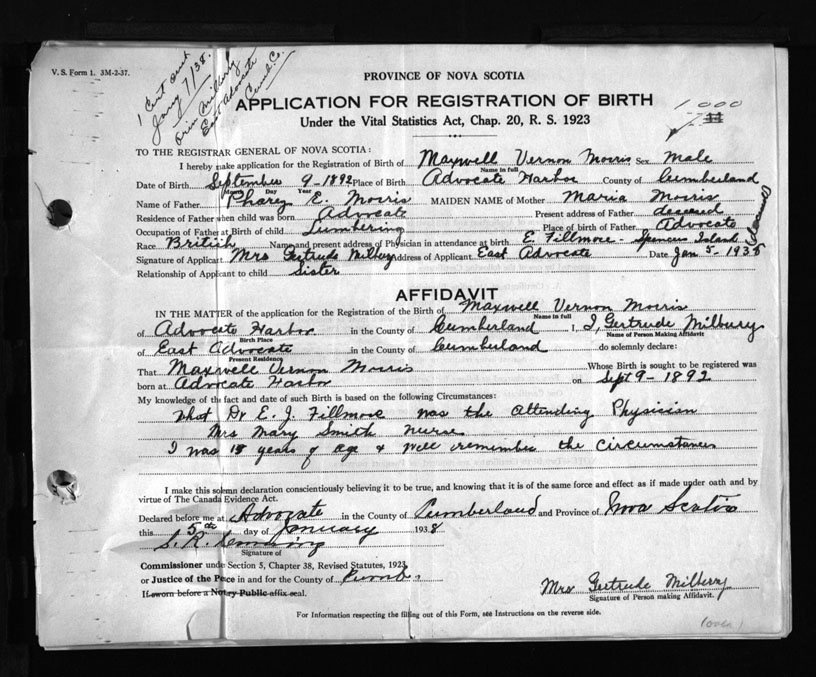 V. S. Form 1. 3M-2-37.
1 Cert sent
Jany 7/38.
Orin Milbery
East Advocate
Cumb. Co.
PROVINCE OF NOVA SCOTIA
APPLICATION FOR REGISTRATION OF BIRTH
Under the Vital Statistics Act, Chap. 20, R. S. 1923
1000
TO THE REGISTRAR GENERAL OF NOVA SCOTIA:
I hereby make application for the Registration of Birth of Maxwell Vernon Morris Sex Male
Name in full
Date of Birth September 9-1892 Place of Birth Advocate Harbor County of Cumberland
Month Day Year
Name of Father Pharez E. Morris MAIDEN NAME of Mother Maria Morris
Residence of Father when child was born Advocate Present address of Father deceased
Occupation of Father at Birth of child Lumbering Place of birth of Father Advocate
Race British Name and present address of Physician in attendance at birth E. Fillmore - Spencers Island deceased
Signature of Applicant Mrs Gertrude Milbery Address of Applicant East Advocate Date Jan 5-1938
Relationship of Applicant to child Sister
AFFIDAVIT
IN THE MATTER of the application for the Registration of the Birth of Maxwell Vernon Morris
Name in full
of Advocate Harbor in the County of Cumberland I, I, Gertrude Milbury
Birth Place Name of Person Making Affidavit
of East Advocate in the County of Cumberland do solemnly declare:
Present Residence
That Maxwell Vernon Morris Whose Birth is sought to be registered was
born at Advocate Harbor on Sept 9-1892
My knowledge of the fact and date of such Birth is based on the following Circumstances:
That Dr E. J. Fillmore was the attending Physician
Mrs Mary Smith Nurse
I was 18 years of age & well remember the circumstances
I make this solemn declaration conscientiously believing it to be true, and knowing that it is of the same force and effect as if made under oath and by
virtue of The Canada Evidence Act.
Declared before me at Advocate in the County of Cumberland and Province of Nova Scotia
this 5th day of January 1938
S. R.
Signature of
Commissioner under Section 5, Chapter 38, Revised Statutes, 1923
or Justice of the Peace in and for the County of Cumb.
If sworn before a Notry Public affix seal.
Mrs Gertrude Milbery
Signature of Person making Affidavit.
For Information respecting the filling out of this Form, see Instructions on the reverse side.
(over)